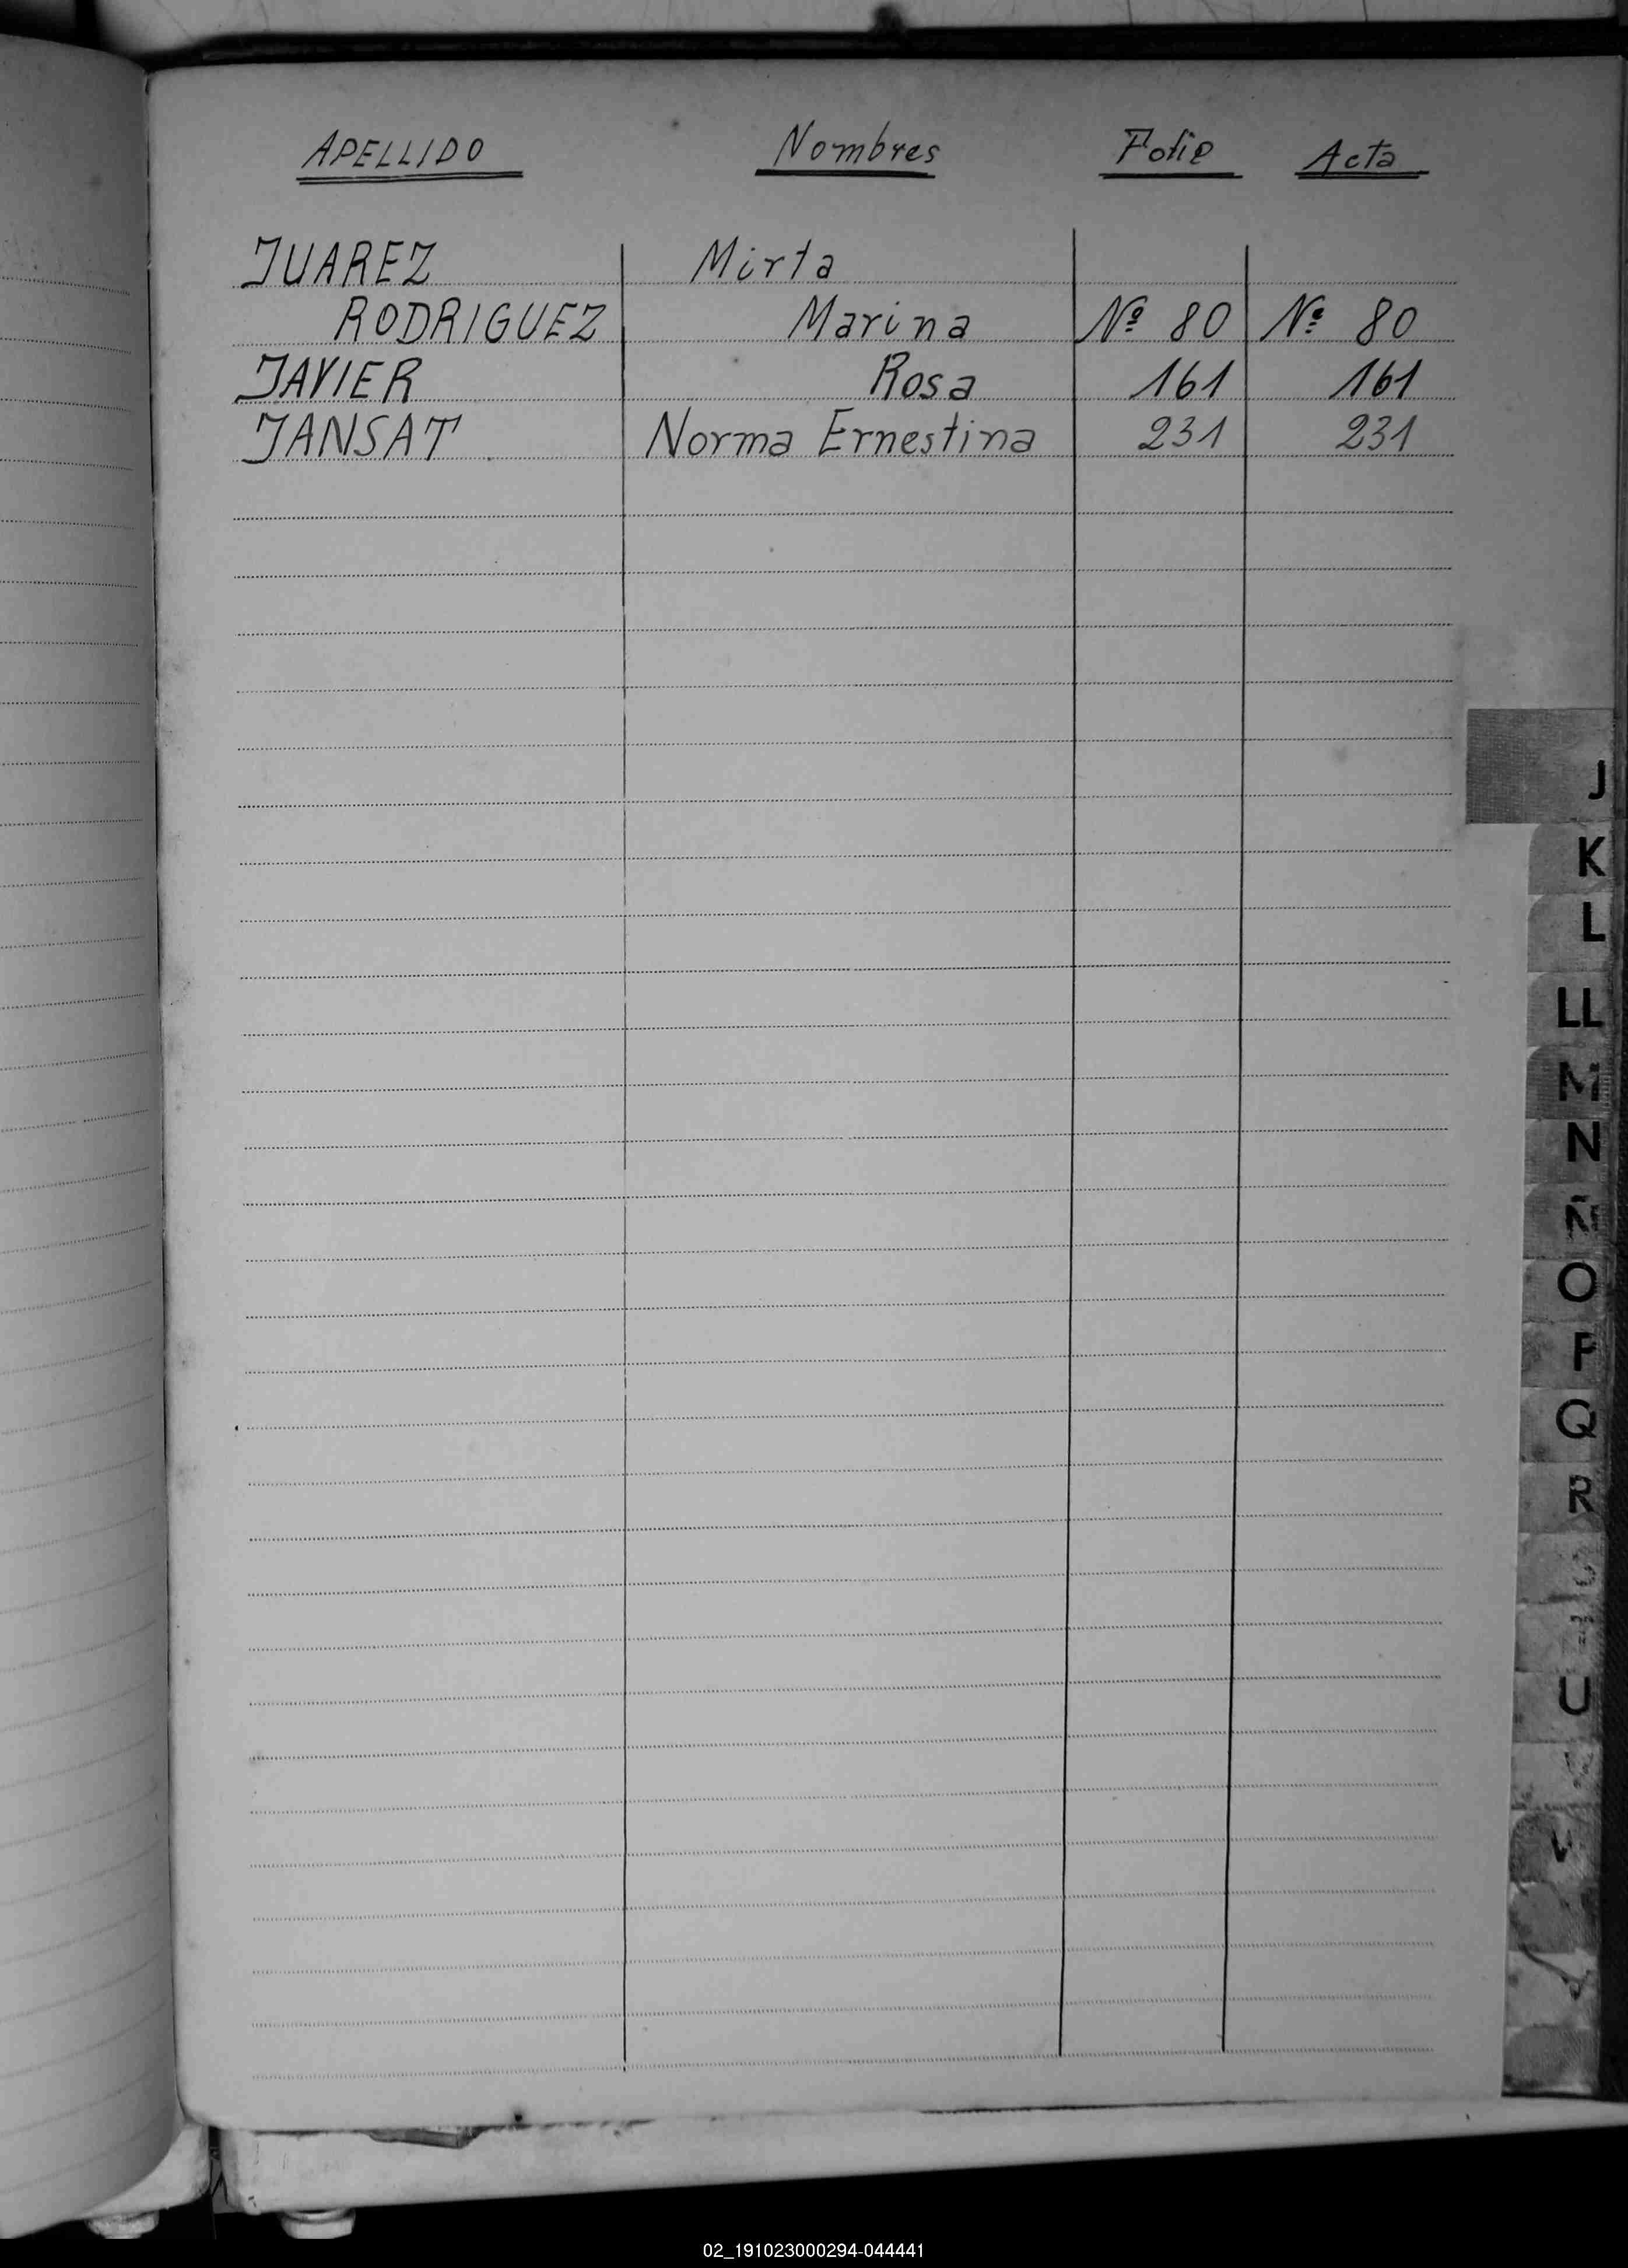 APELLIDO Nombres Folio Acta
JUAREZ Mirta
RODRIGUEZ Marina Nº 80 Nº 80
JAVIER Rosa 161 161
JANSAT Norma Ernestina 231 231
J
K
L
LL
M
N
Ñ
O
P
Q
R
U
V
02_191023000294-044441